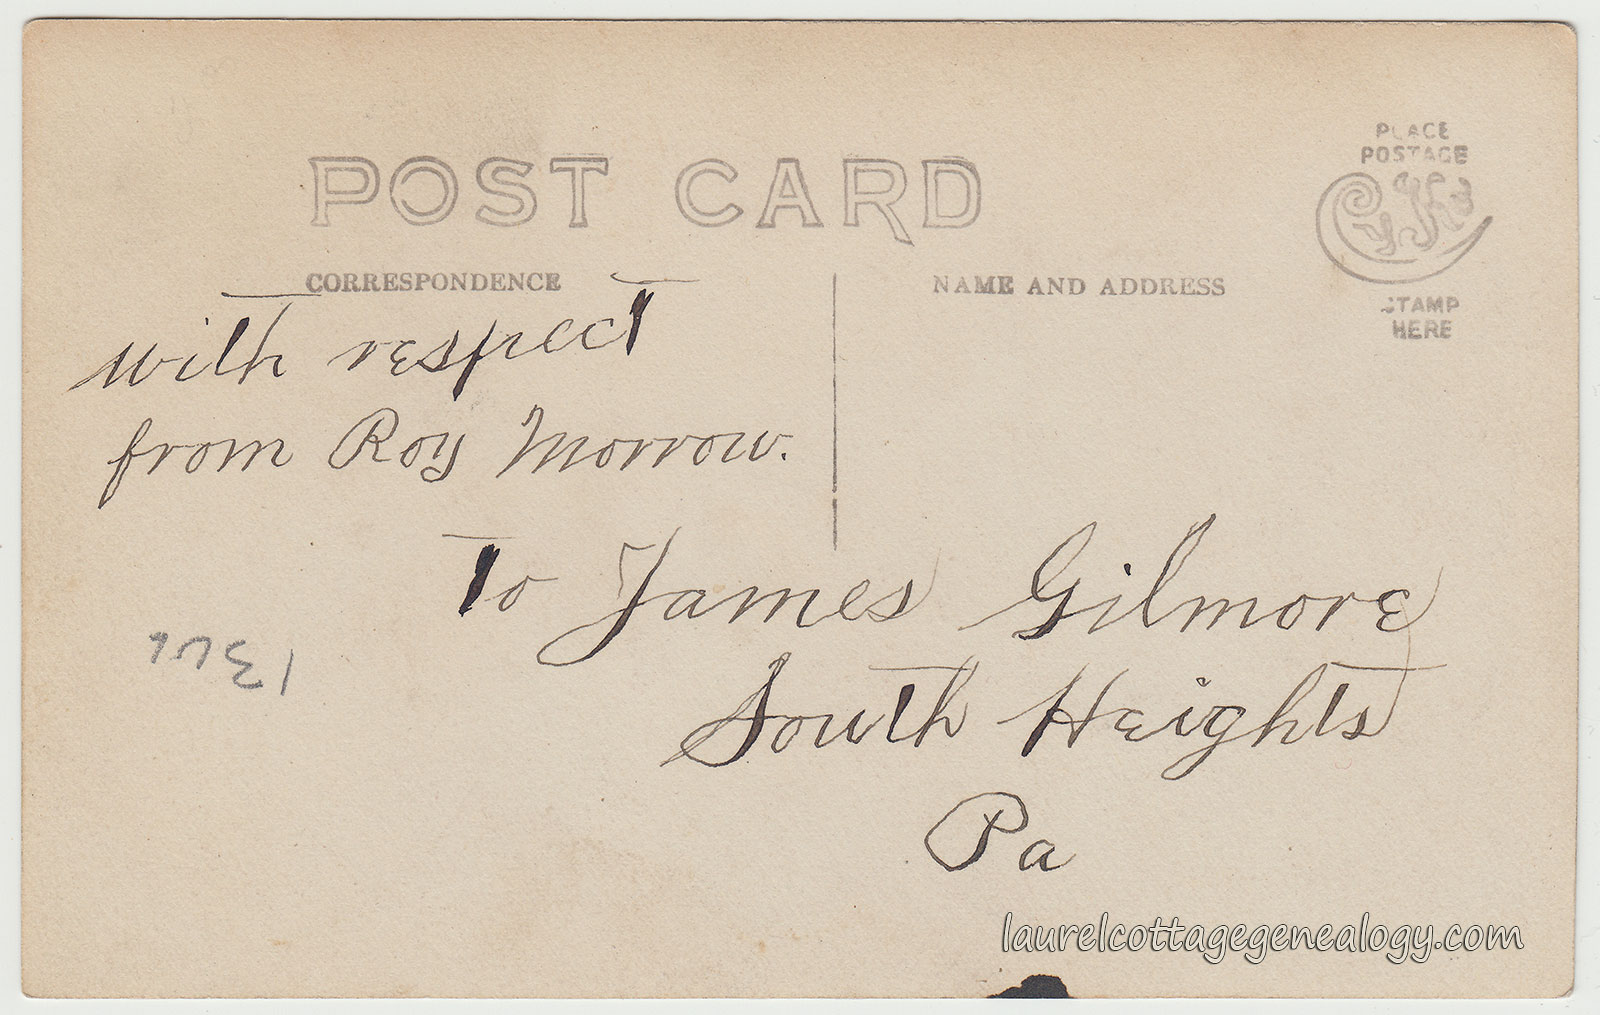 POST CARD
PLACE
POSTAGE
CYKO
STAMP
HERE
CORRESPONDENCE
NAME AND ADDRESS
with respect
from Roy Morrow.
To James Gilmore
South Heights
Pa
laurelcottagegenealogy.com